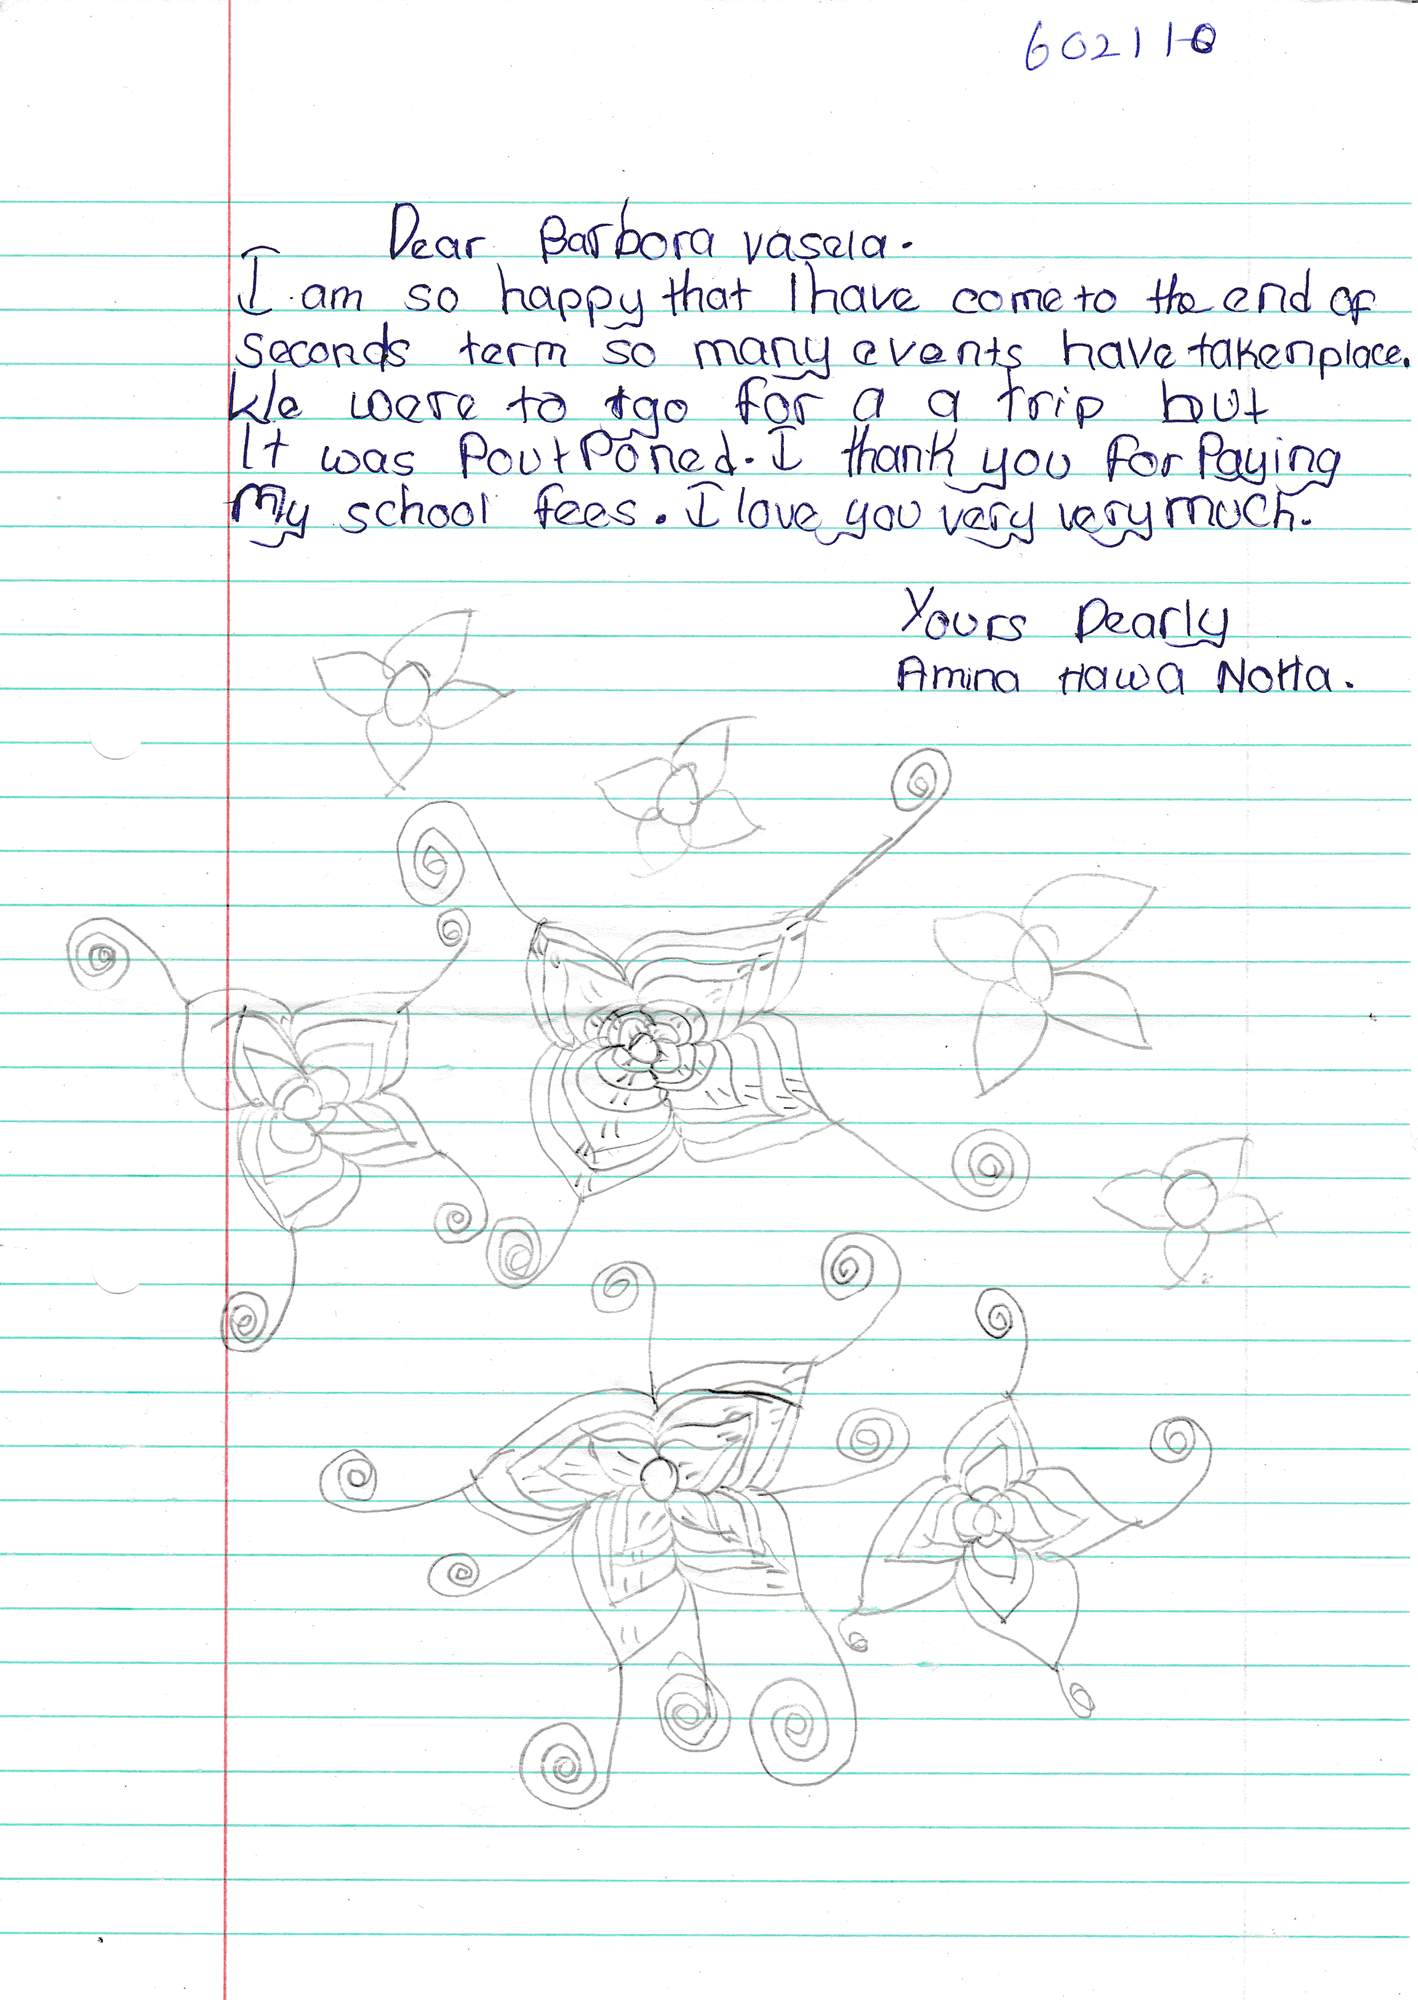 602110
Dear Barbora vasela.
I am so happy that I have come to the end of
seconds term so many events have taken place.
We were to go for a a trip but
It was PoutPoned. I thank you for Paying
My school fees. I love you very very much.
Yours Dearly
Amina Hawa Notta.